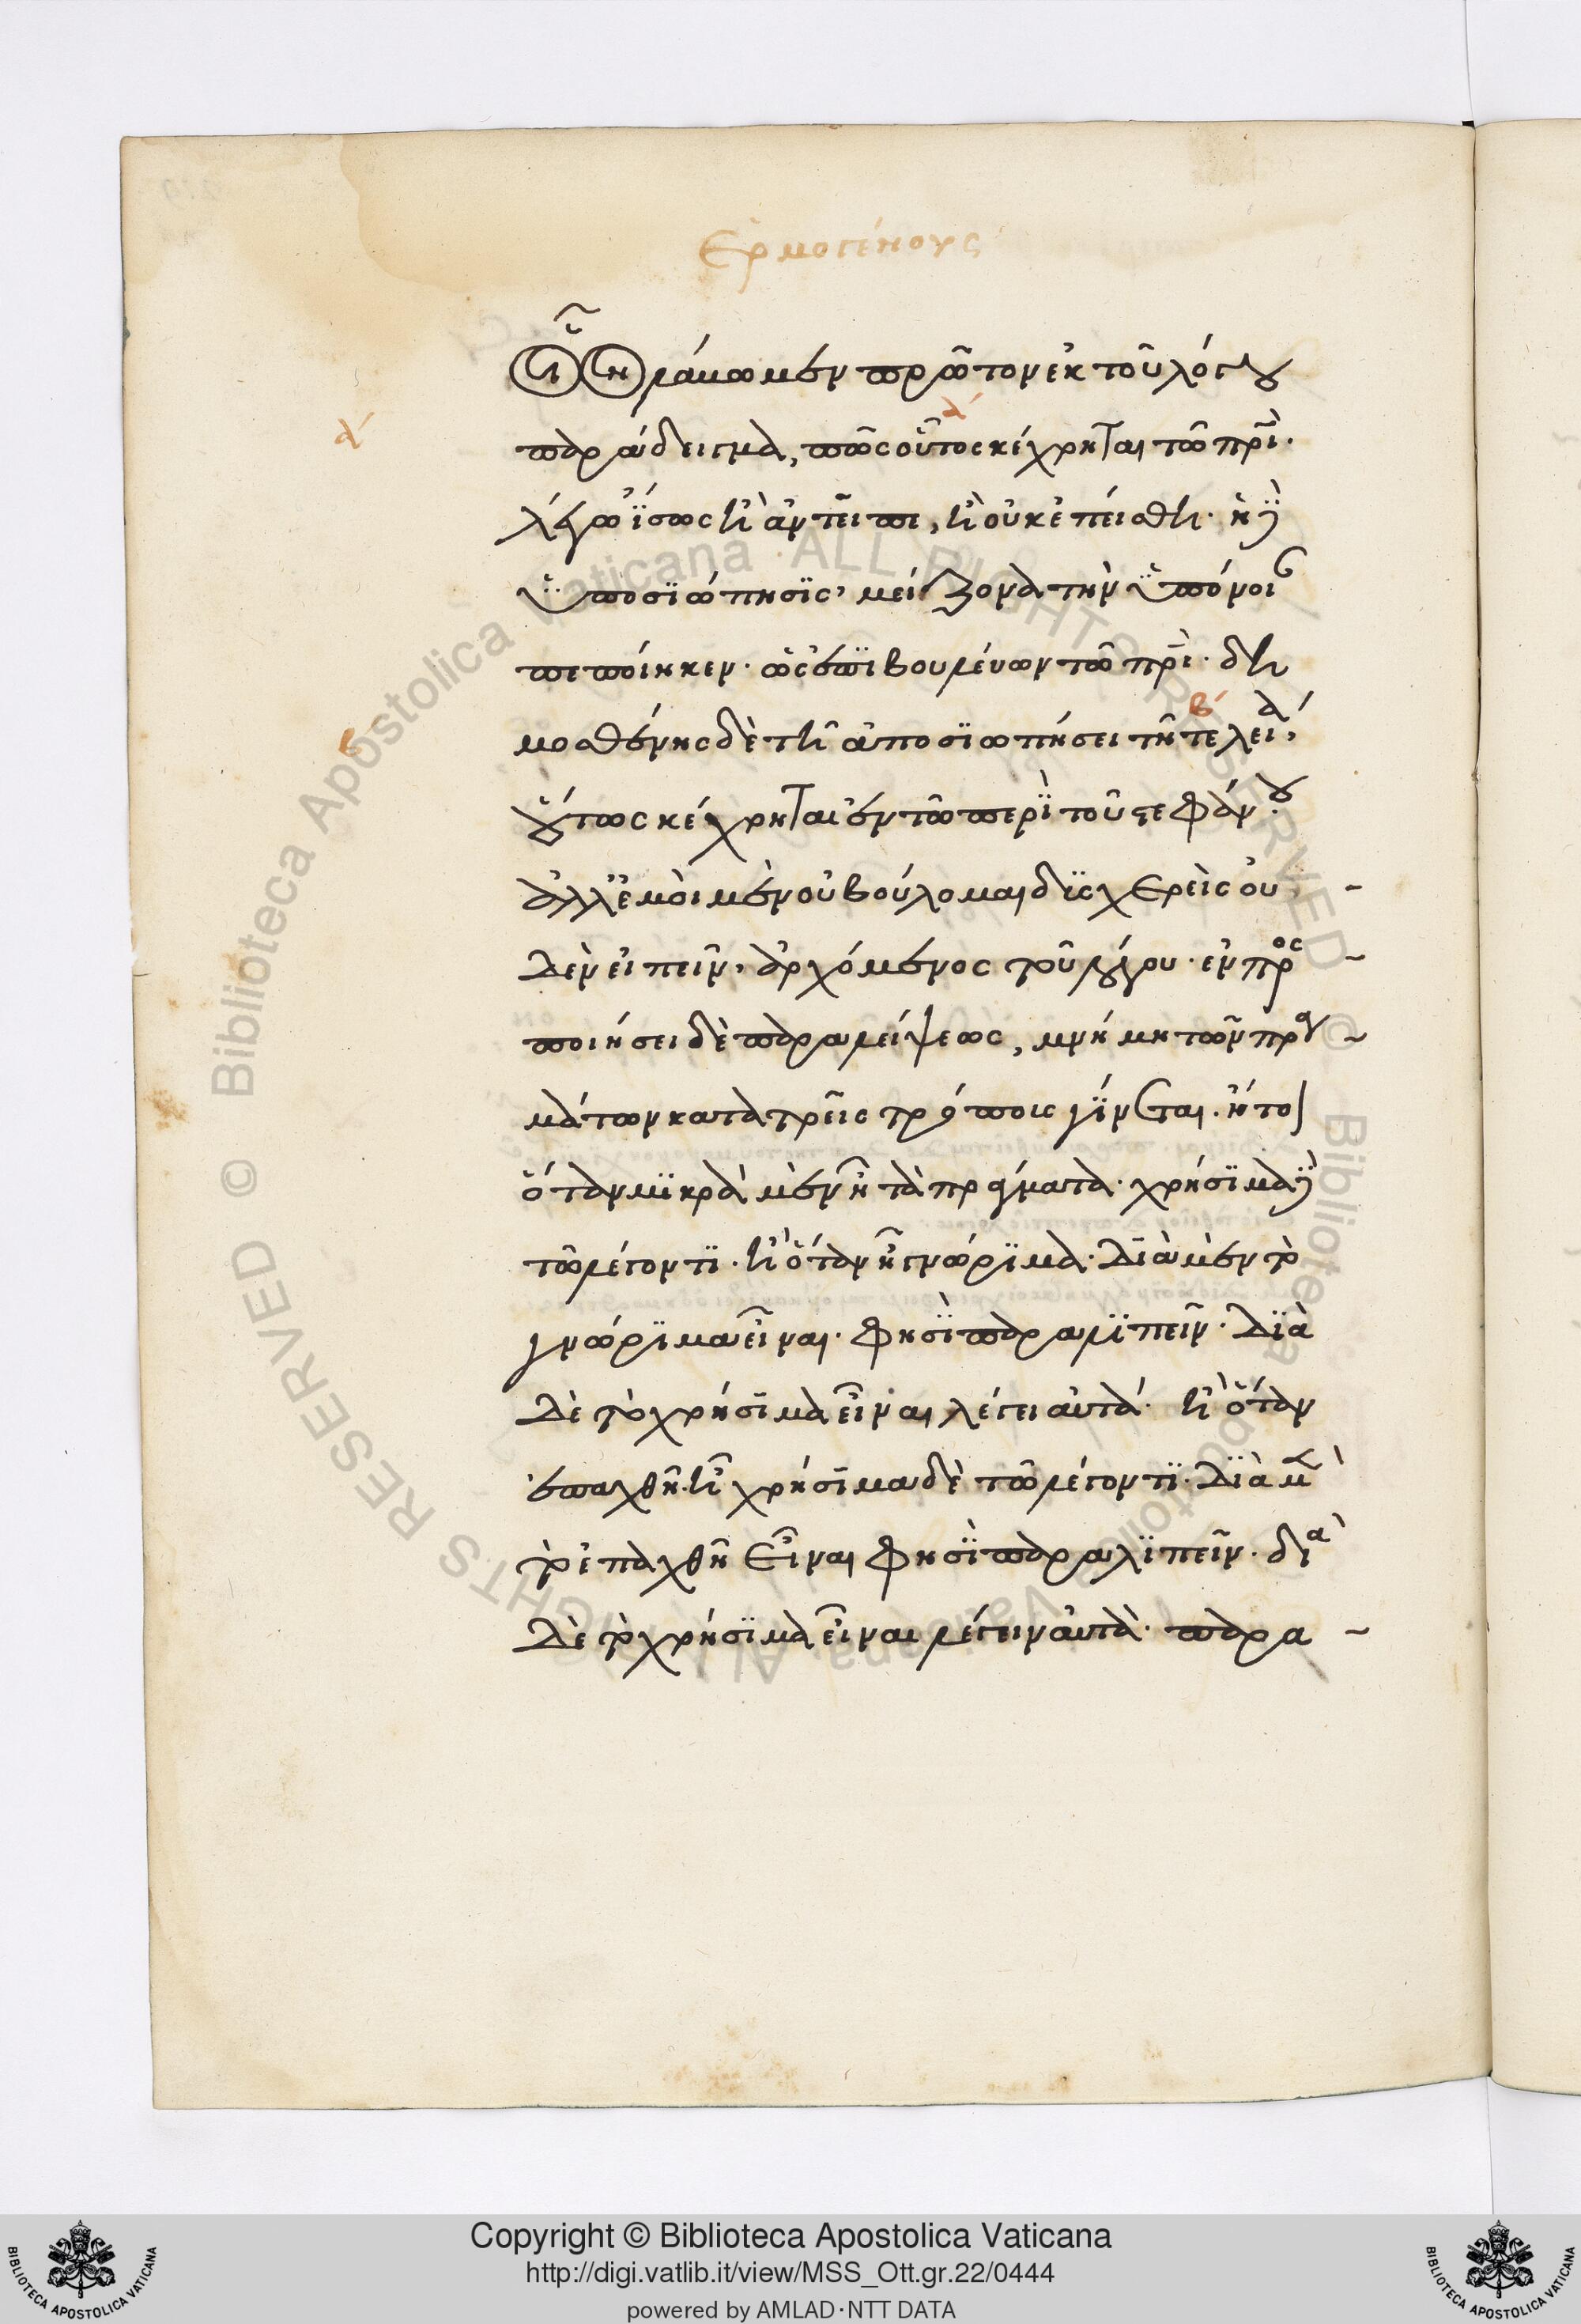 Ερμογένους
ράμωμεν πρῶτον ἐκ τοῦ λόγου
α´
α´
παράδειγμα, πῶς οὗτος κέχρηται τῶ πρϊ.
λέγω ἴσως ἢ ἀντεῖπε, ἢ οὐκ ἐπείσθη. ἡ
ὑποσϊώπησϊς, μείζονα τὴν ὑπόνοι
πεποίηκεν. ὡς ἐπϊβουμένων τῶ πρϊ. δη
β´
β
μοσθένης δὲ τῆ ἀποσϊωπήσει τῆ τελεία,
οὕτως κέχρηται ἐν τῶ περϊ τοῦ στεφάνου.
ἀλλ' ἐμοὶ μὲν οὐ βούλομαι δϊσχερεὶς οὐ
δὲν εἰπεῖν, ἀρχόμενος τοῦ λόγου. ἐν προς
ποιήσει δὲ παραλείψεως, μνήμη τῶν πραγ
μάτων κατὰ τρεῖς τρόποις γίνεται. ἤτοι
ὅταν μϊκρὰ μὲν ἦ τὰ πράγματα. χρήσϊμα
τῶ λέγοντϊ. ἢ ὅταν ἦ γνώρϊμα. Διὰ μὲν τὸ
γνώρϊμα εἶναι. φησϊ παραλϊπεῖν. Διὰ
Δὲ τὸ χρήσϊμα εἶναι λέγει αὐτά. ἢ ὅταν
ἐπαχθῆ. ἦ χρήσϊμα δὲ τῶ λέγοντϊ. Διὰ μ
τὸ ἐπαχθῆ εἶναι φησϊ παραλϊπεῖν. διὰ
Δὲ τὸ χρήσϊμα εἶναι λέγειν αὐτὰ. παρα
Copyright © Biblioteca Apostolica Vaticana
http://digi.vatlib.it/view/MSS_Ott.gr.22/0444
powered by AMLAD·NTT DATA
BIBLIOTECA APOSTOLICA VATICANA
BIBLIOTECA APOSTOLICA VATICANA
© Biblioteca Apostolica Vaticana. ALL RIGHTS RESERVED
© Biblioteca Apostolica Vaticana. ALL RIGHTS RESERVED